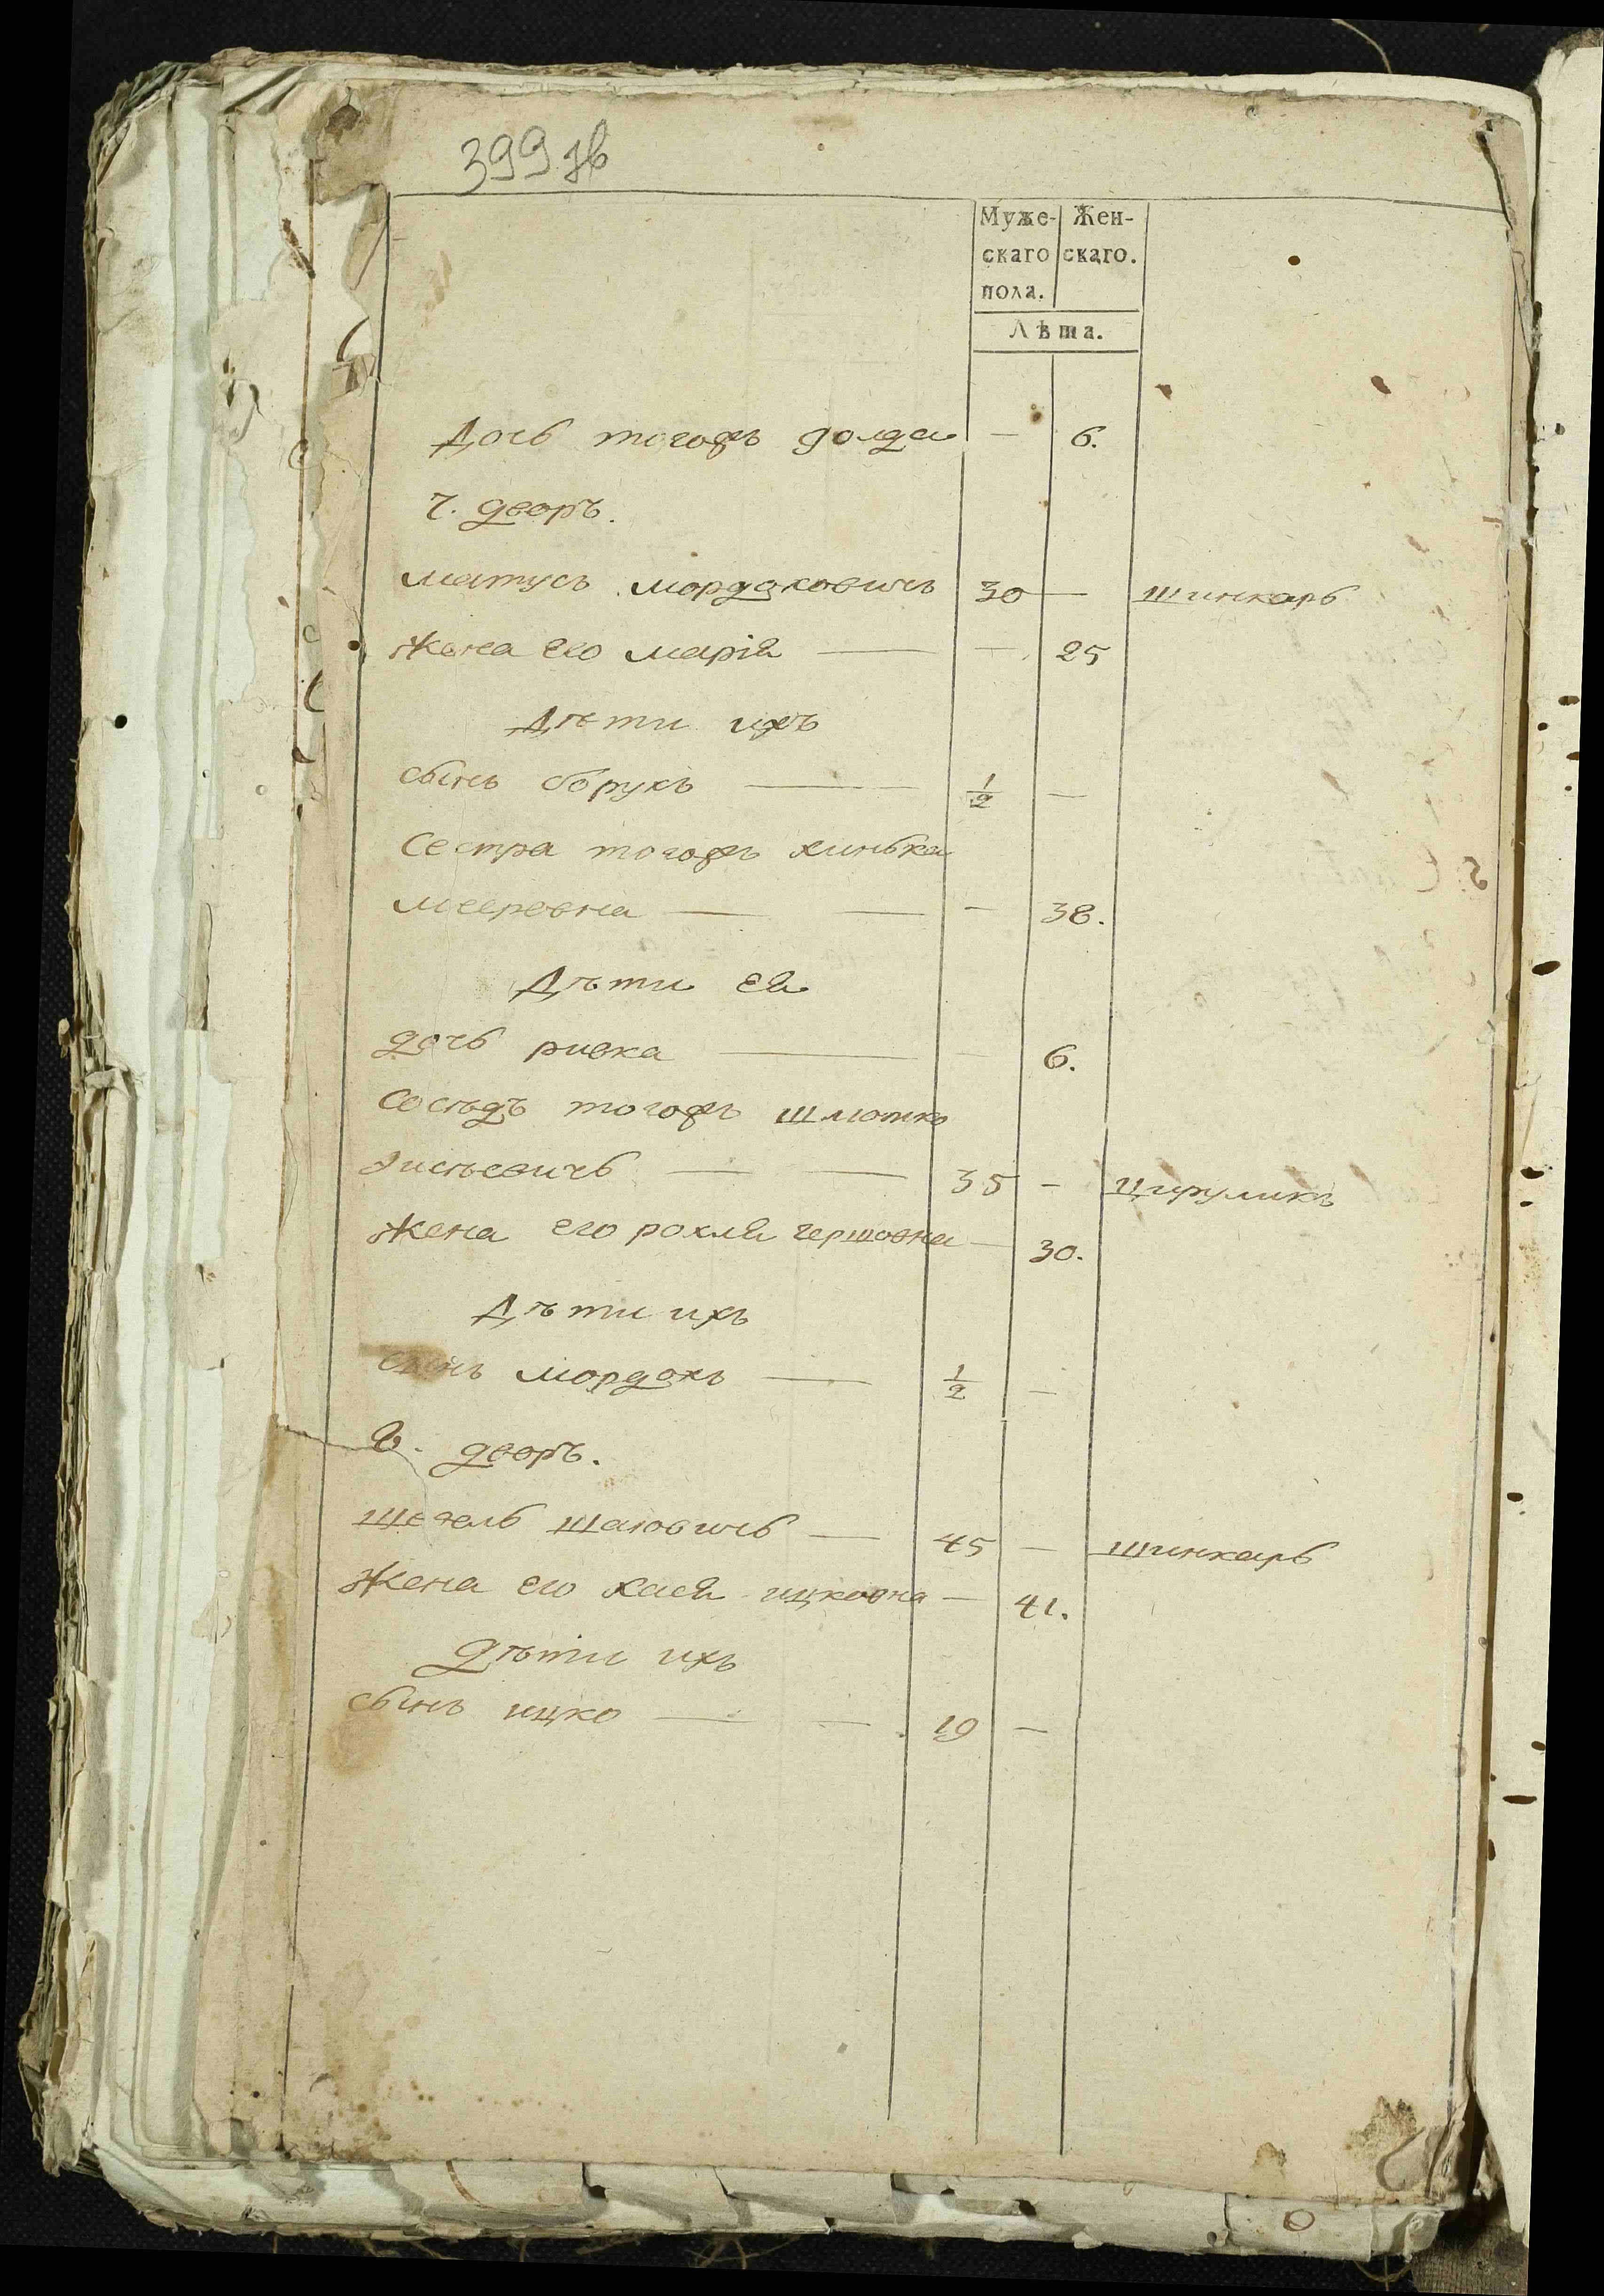 399 зв
Муже- Жен-
скаго скаго.
пола.
Лѣта.
Дочь тогожъ голда — 6.
7. дворъ.
матусь мордаховичъ 30 — шинкарь
жена его марія — — 25
Дѣти ихъ
сынъ борухъ — 1/2 —
Сестра тогожъ хинька
мееровна — — — 38.
Дѣти ея
дочь ривка — — 6.
Сосѣдъ тогожъ шлиомко
35 — цируликъ
жена его рохля гершовна — 30.
Дѣти ихъ
сынъ мордохъ — 1/2 —
8. дворъ.
шаювичь — 45 — шинкарь
Жена его хася ицковна — 41.
дѣти ихъ
сынъ ицко — — 19 —